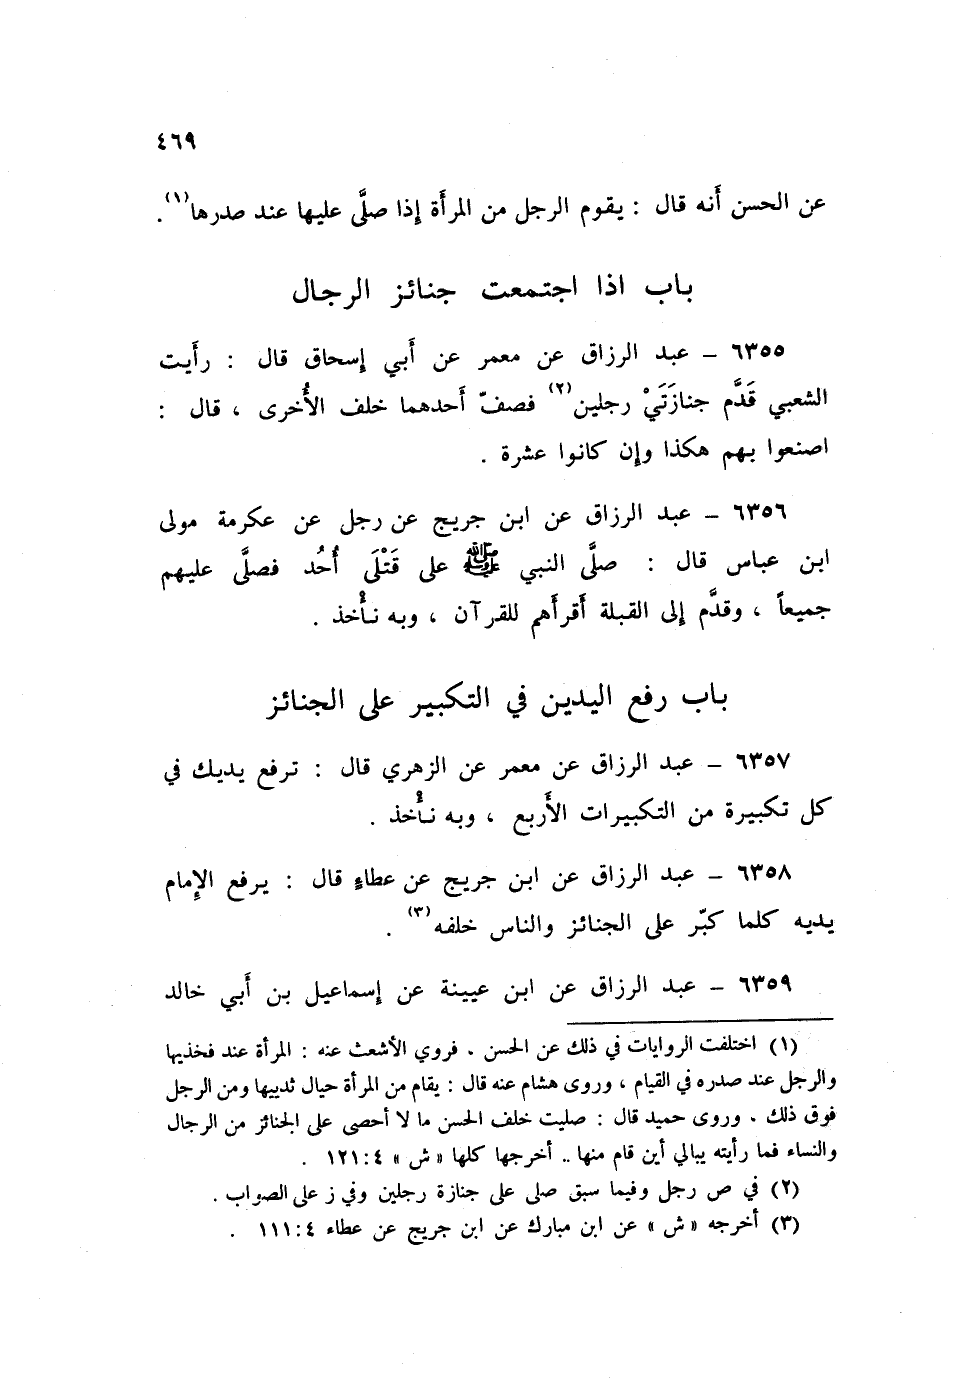 ٤٦٩
عن الحسن أنه قال : يقوم الرجل من المرأة إذا صلَّى عليها عند صدرها(١) .
باب اذا اجتمعت جنائز الرجال
٦٣٥٥ – عبد الرزاق عن معمر عن أبي إسحاق قال : رأيت
الشعبي قَدَّم جنازَتَيْ رجلين(٢) فصفّ أحدهما خلف الأُخرى ، قال :
اصنعوا بهم هكذا وإن كانوا عشرة .
٦٣٥٦ – عبد الرزاق عن ابن جريج عن رجل عن عكرمة مولى
ابن عباس قال : صلَّى النبي ﷺ على قَتْلَى أُحُد فصلَّى عليهم
جميعاً ، وقدَّم إلى القبلة أقرأهم للقرآن ، وبه نأْخذ .
باب رفع اليدين في التكبير على الجنائز
٦٣٥٧ – عبد الرزاق عن معمر عن الزهري قال : ترفع يديك في
كل تكبيرة من التكبيرات الأربع ، وبه نأْخذ .
٦٣٥٨ – عبد الرزاق عن ابن جريج عن عطاءٍ قال : يرفع الإمام
يديه كلما كبّر على الجنائز والناس خلفه(٣) .
٦٣٥٩ – عبد الرزاق عن ابن عيينة عن إسماعيل بن أبي خالد
(١) اختلفت الروايات في ذلك عن الحسن . فروي الأشعث عنه : المرأة عند فخذيها
والرجل عند صدره في القيام ، وروى هشام عنه قال : يقام من المرأة حيال ثدييها ومن الرجل
فوق ذلك . وروى حميد قال : صليت خلف الحسن ما لا أحصى على الجنائز من الرجال
والنساء فما رأيته يبالي أين قام منها .. أخرجها كلها « ش » ٤ : ١٢١ .
(٢) في ص رجل وفيما سبق صلى على جنازة رجلين وفي ز على الصواب .
(٣) أخرجه « ش » عن ابن مبارك عن ابن جريج عن عطاء ٤ : ١١١ .